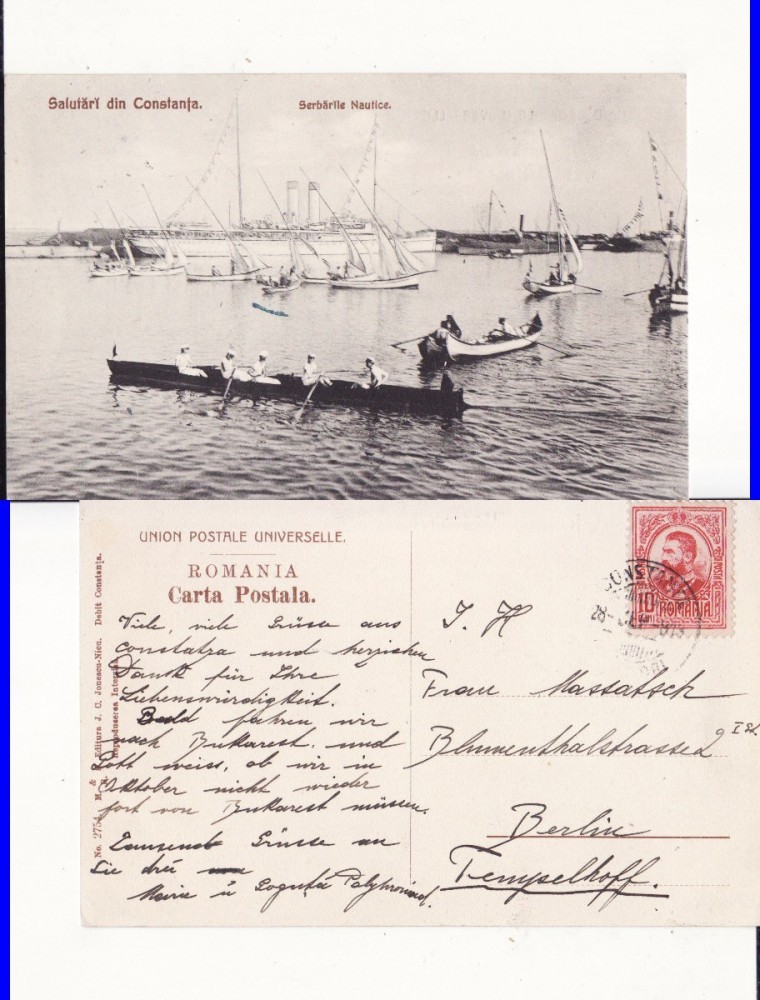 Salutări din Constanța.
Serbările Nautice.
UNION POSTALE UNIVERSELLE.
ROMANIA
Carta Postala.
No. 2754. M. & Editura J. C. Jonescu-Nicu. Debit Constanța.
Reproducerea Interzisă
CONSTANTA
10 ROMANIA
Viele, viele Grüsse aus
Constatza und herzlichen
Dank für Ihre
Liebenswürdigkeit.
Bald fahren wir
nach Bukarest und
Gott weiss, ob wir in
Oktober nicht wieder
fort von Bukarest müssen.
Tausend Grüsse an
Sie drei
Maria u
I. H
Frau Massatsch
Blumenthalstrasse
Berlin
Tempelhoff.